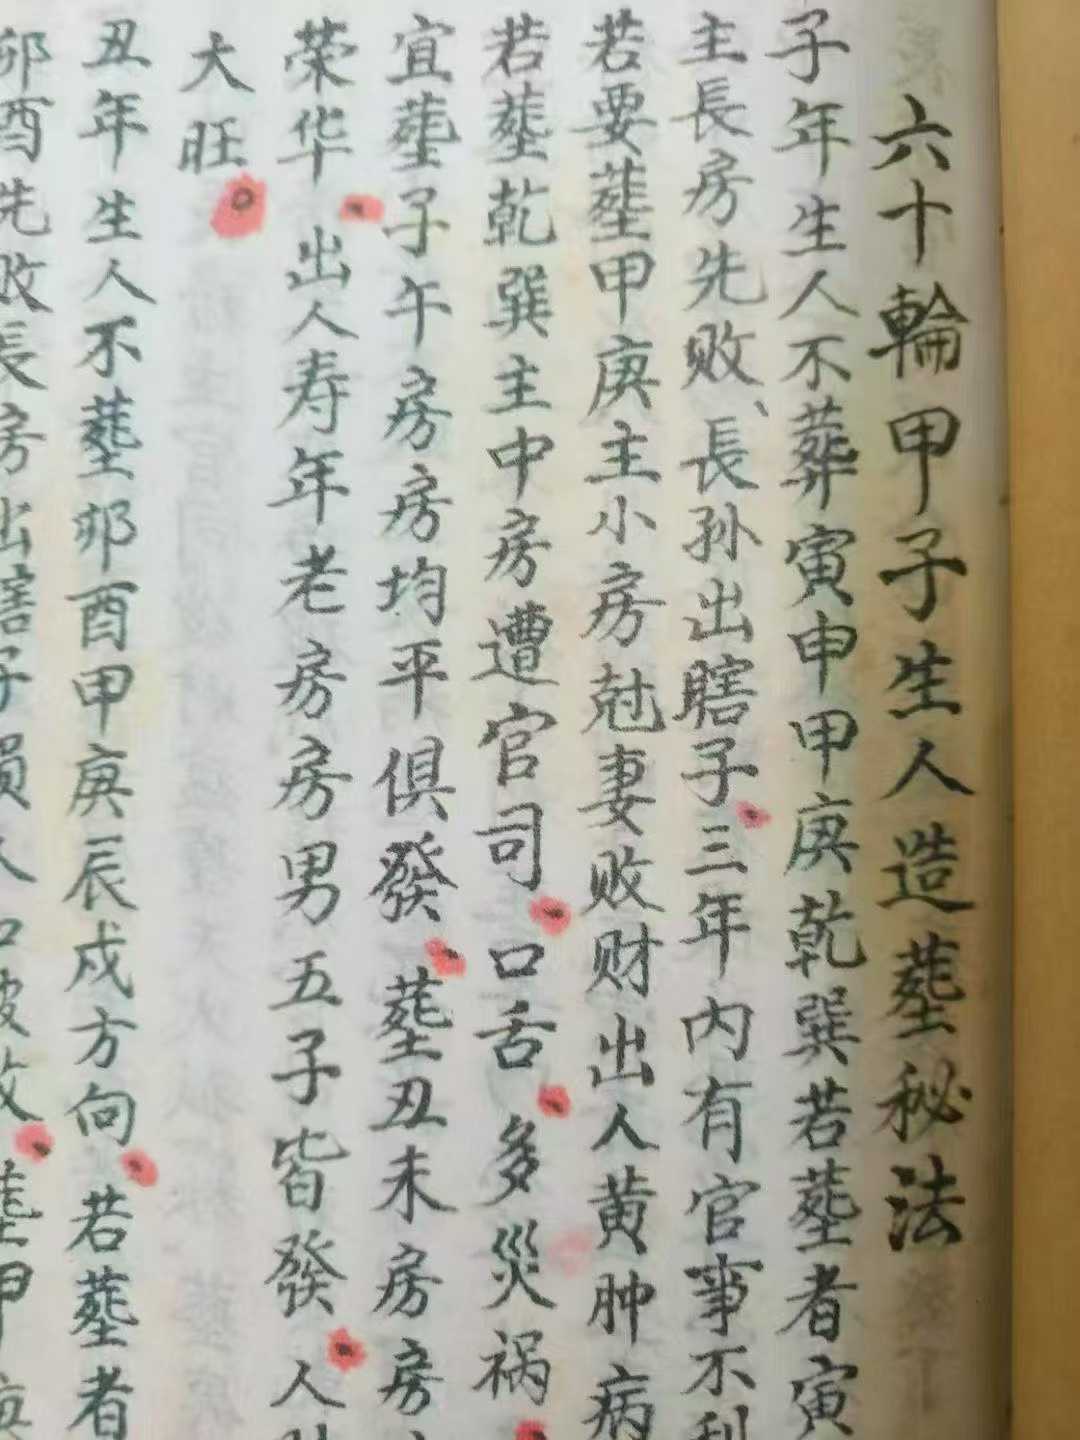 六十輪甲子生人造塟秘法
子年生人不葬寅申甲庚乾巽若塟者寅
主長房先敗、長孙出瞎子三年内有官事不利
若要塟甲庚主小房尅妻敗财出人黄肿病
若塟乾巽主中房遭官司口舌多災祸
宜塟子午房房均平俱發、塟丑未房房
荣华出人寿年老房房男五子皆發人
大旺。
丑年生人不塟卯酉甲庚辰戌方向若塟者
卯酉先敗長房出瞎子損人口 塟甲